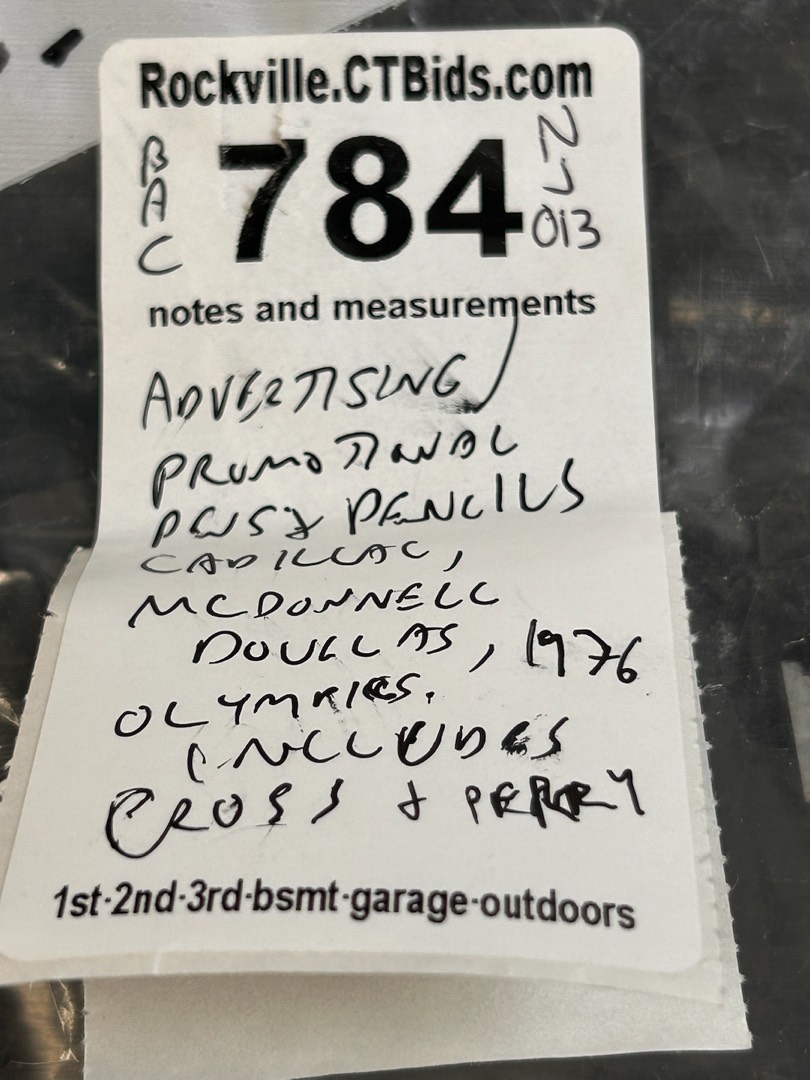 Rockville.CTBids.com
BAC
784
NJ
013
notes and measurements
ADVERTISING
PROMOTIONAL
PENS & PENCILS
CADILLAC,
MCDONNELL
DOUGLAS, 1976
OLYMPICS.
INCLUDES
CROSS & PERRY
1st·2nd·3rd·bsmt·garage·outdoors